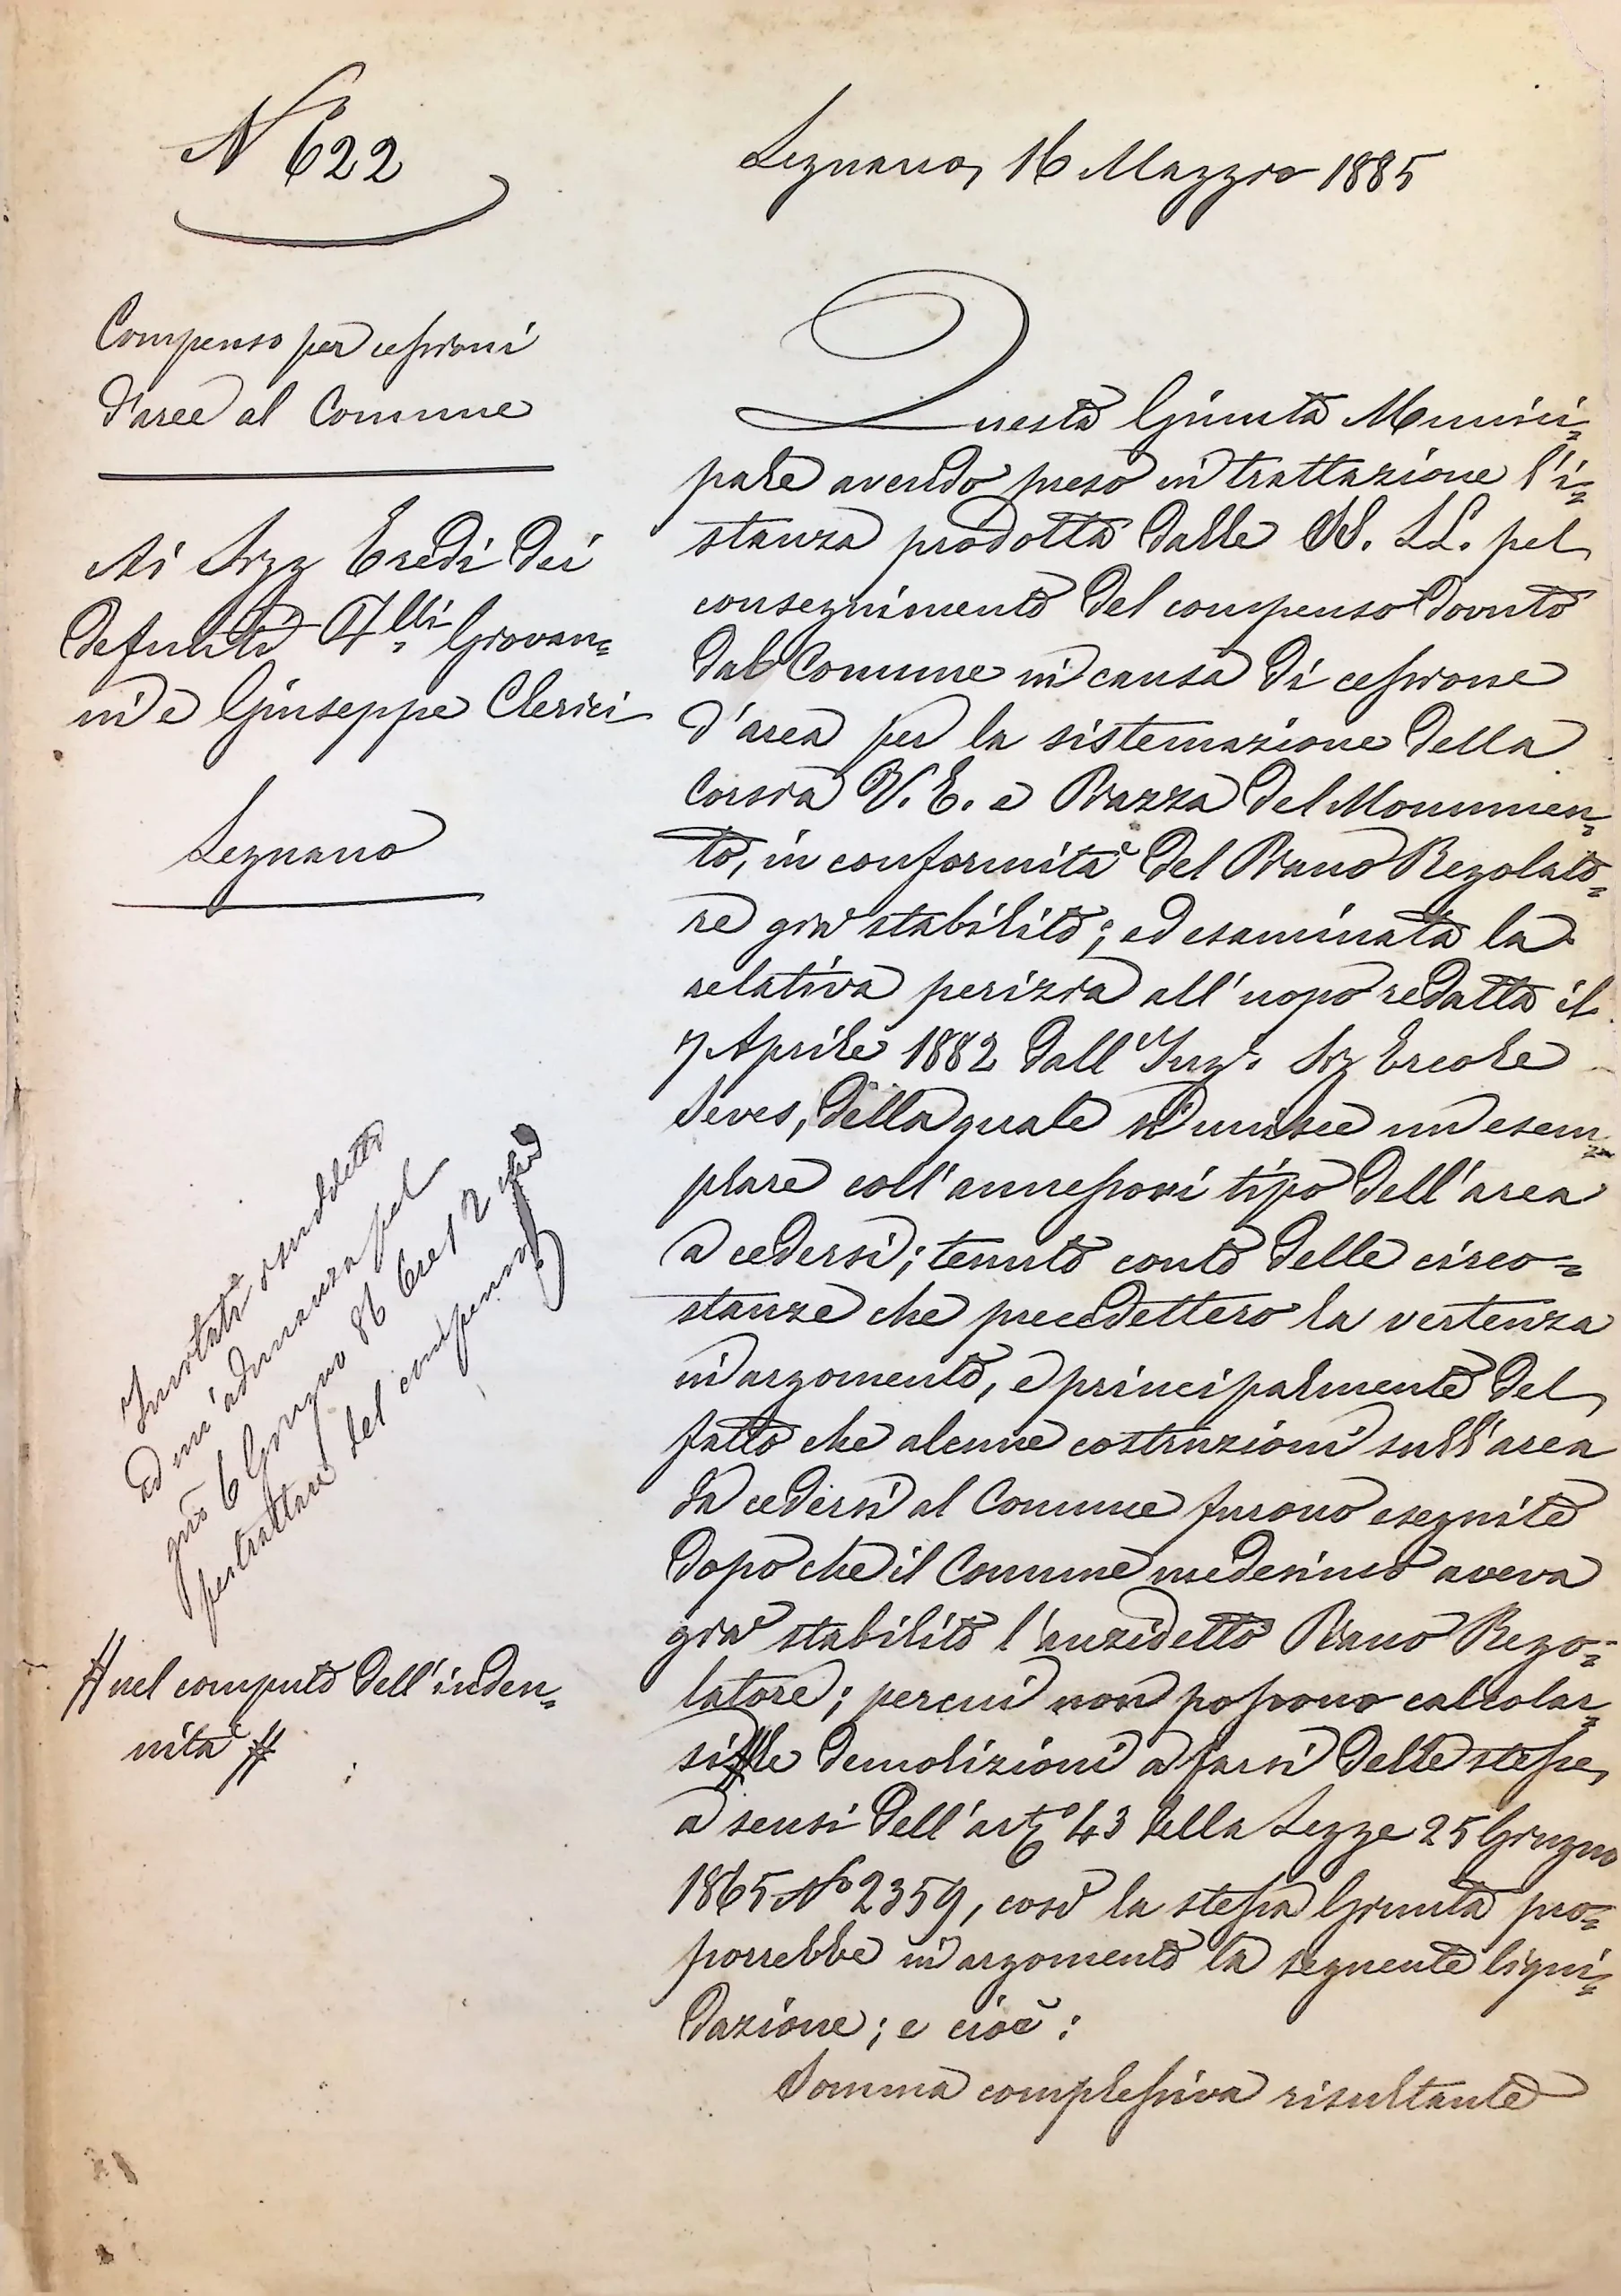 No 622
Legnano, 16 Maggio 1885
Compenso per cessioni
d'aree al Comune
Ai Sigg Eredi dei
defunti Flli Giovan=
ni e Giuseppe Clerici
Legnano
Questa Giunta Munici=
pale avendo preso in trattazione l'i=
stanza prodotta dalle SS. LL. pel
conseguimento del compenso dovuto
dal Comune in causa di cessione
d'area per la sistemazione della
Corsia V. E. e Piazza del Monumen=
to, in conformità del Piano Regolato=
re già stabilito; ed esaminata la
relativa perizia all'uopo redatta il
7 Aprile 1882 dall'Ing. Sig Ercole
Seves, della quale si unisce un esem=
plare coll'annessovi tipo dell'area
a cedersi; tenuto conto delle circo=
stanze che precedettero la vertenza
in argomento, e principalmente del
fatto che alcune costruzioni sull'area
da cedersi al Comune furono eseguite
dopo che il Comune medesimo aveva
già stabilito l'anzidetto Piano Rego=
latore; percui non possono calcolar=
si # le demolizioni a farsi delle stesse,
a sensi dell'arto 43 della Legge 25 Giugno
1865 No 2359, così la stessa Giunta pro=
porrebbe in argomento la seguente liqui=
dazione; e cioè:
Somma complessiva risultante
Invitati i suddetti
ad un'adunanza pel
gno 6 Giugno 86 Ore 12
pertrattare del compenso
# nel computo dell'inden=
nità #